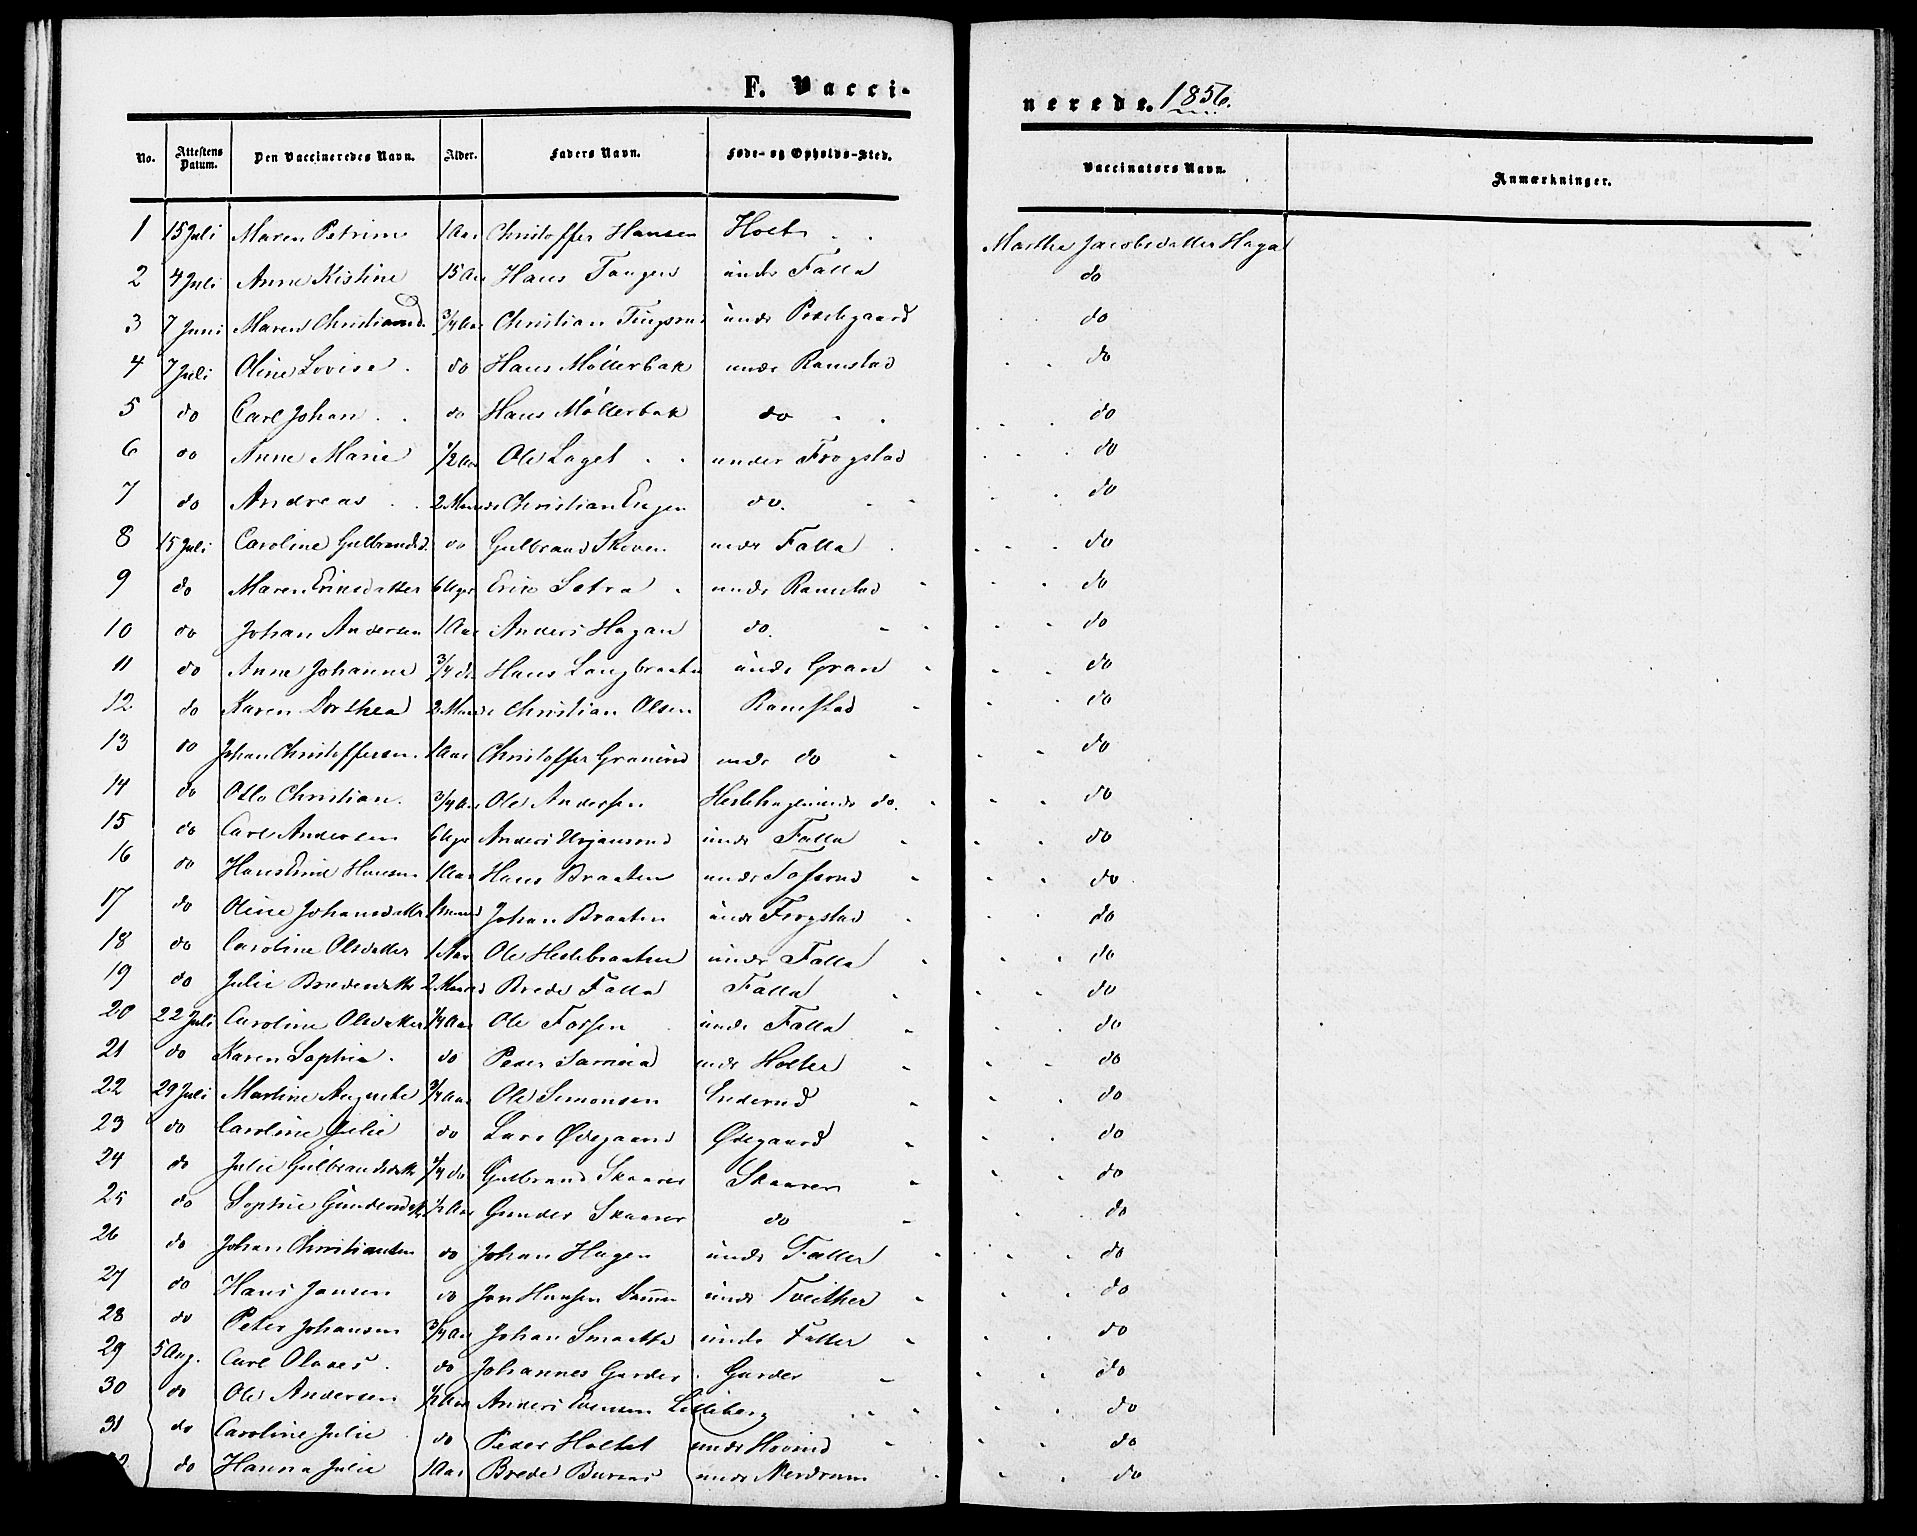 F. Vacci-
nerede. 1856.
No. Attestens Datum. Den Vaccineredes Navn. Alder. Faders Navn. Føde- og Opholds-Sted. Vaccinators Navn. Anmærkninger.
1 15 Juli Maren Petrine 1 Aar Christoffer Hansen Holt Marthe Jacobsdatter Haga
2 4 Juli Anne Kistine 15 Aar Hans under Falla do
3 7 Juni Maren 3/4 Aar Christian under do
4 7 Juli Oline Lovise do Hans Møllerbak under Ramstad do
5 do Carl Johan do Hans Møllerbak do do
6 do Anne Marie 1/2 Aar Ole under Frogstad do
7 do Andreas 2 Christian do. do
8 15 Juli Caroline Gulbrandsd. do Gulbrand unde Falla do
9 do Maren Ericsdatter 6 Uger Eric Setra unde Ramstad do
10 do Johan Andersen 1 Aar Anders Hagan do. do
11 do Anne Johanne 3/4 do Hans Langbraaten unde Gran do
12 do Karen Dorthea 2 Christian Olsen Ramstad do
13 do Johan Christoffersen 1 Aar Christoffer unde do do
14 do Otto Christian. 3/4 Aar Ole Andersen unde do. do
15 do Carl Andersen 6 Uger Anders unde Falla do
16 do Hans Hansen 1 Aar Hans Braaten unde do
17 do Oline Johansdatter 1 Johan Braaten unde Frogstad do
18 do Caroline Olsdatter 1 Aar Ole unde Falla do
19 do Julie Bredesdatter 2 Brede Falla Falla do
20 22 Juli Caroline Olsdatter 1/4 Aar Ole Fossen unde Falla do
21 do Karen Sophie. do Peder unde Holter do
22 29 Juli Martine Auguste 3/4 Aar Ole Simonsen do
23 do Caroline Julie do Lars Ødegaard Ødegaard do
24 do Julie Gulbrandsdatter 1/4 do Gulbrand Skaarer Skaarer do
25 do Sophie 1/2 Aar Gunder Skaarer do do
26 do Johan Christiansen do Johan Hagen unde Faller do
27 do Hans Jansen do unde Tveither do
28 do Peter Johansen 3/4 Aar Johan unde Faller do
29 5 Aug. Carl Olaves. do Johannes Garder Garder do
30 do Ole Andersen 1/2 Aar Anders Evensen Lilleberg do
31 do Caroline Julie do Peder Holtet unde Hovind do
do Hanna Julie 1 Aar Brede unde Merdrum do